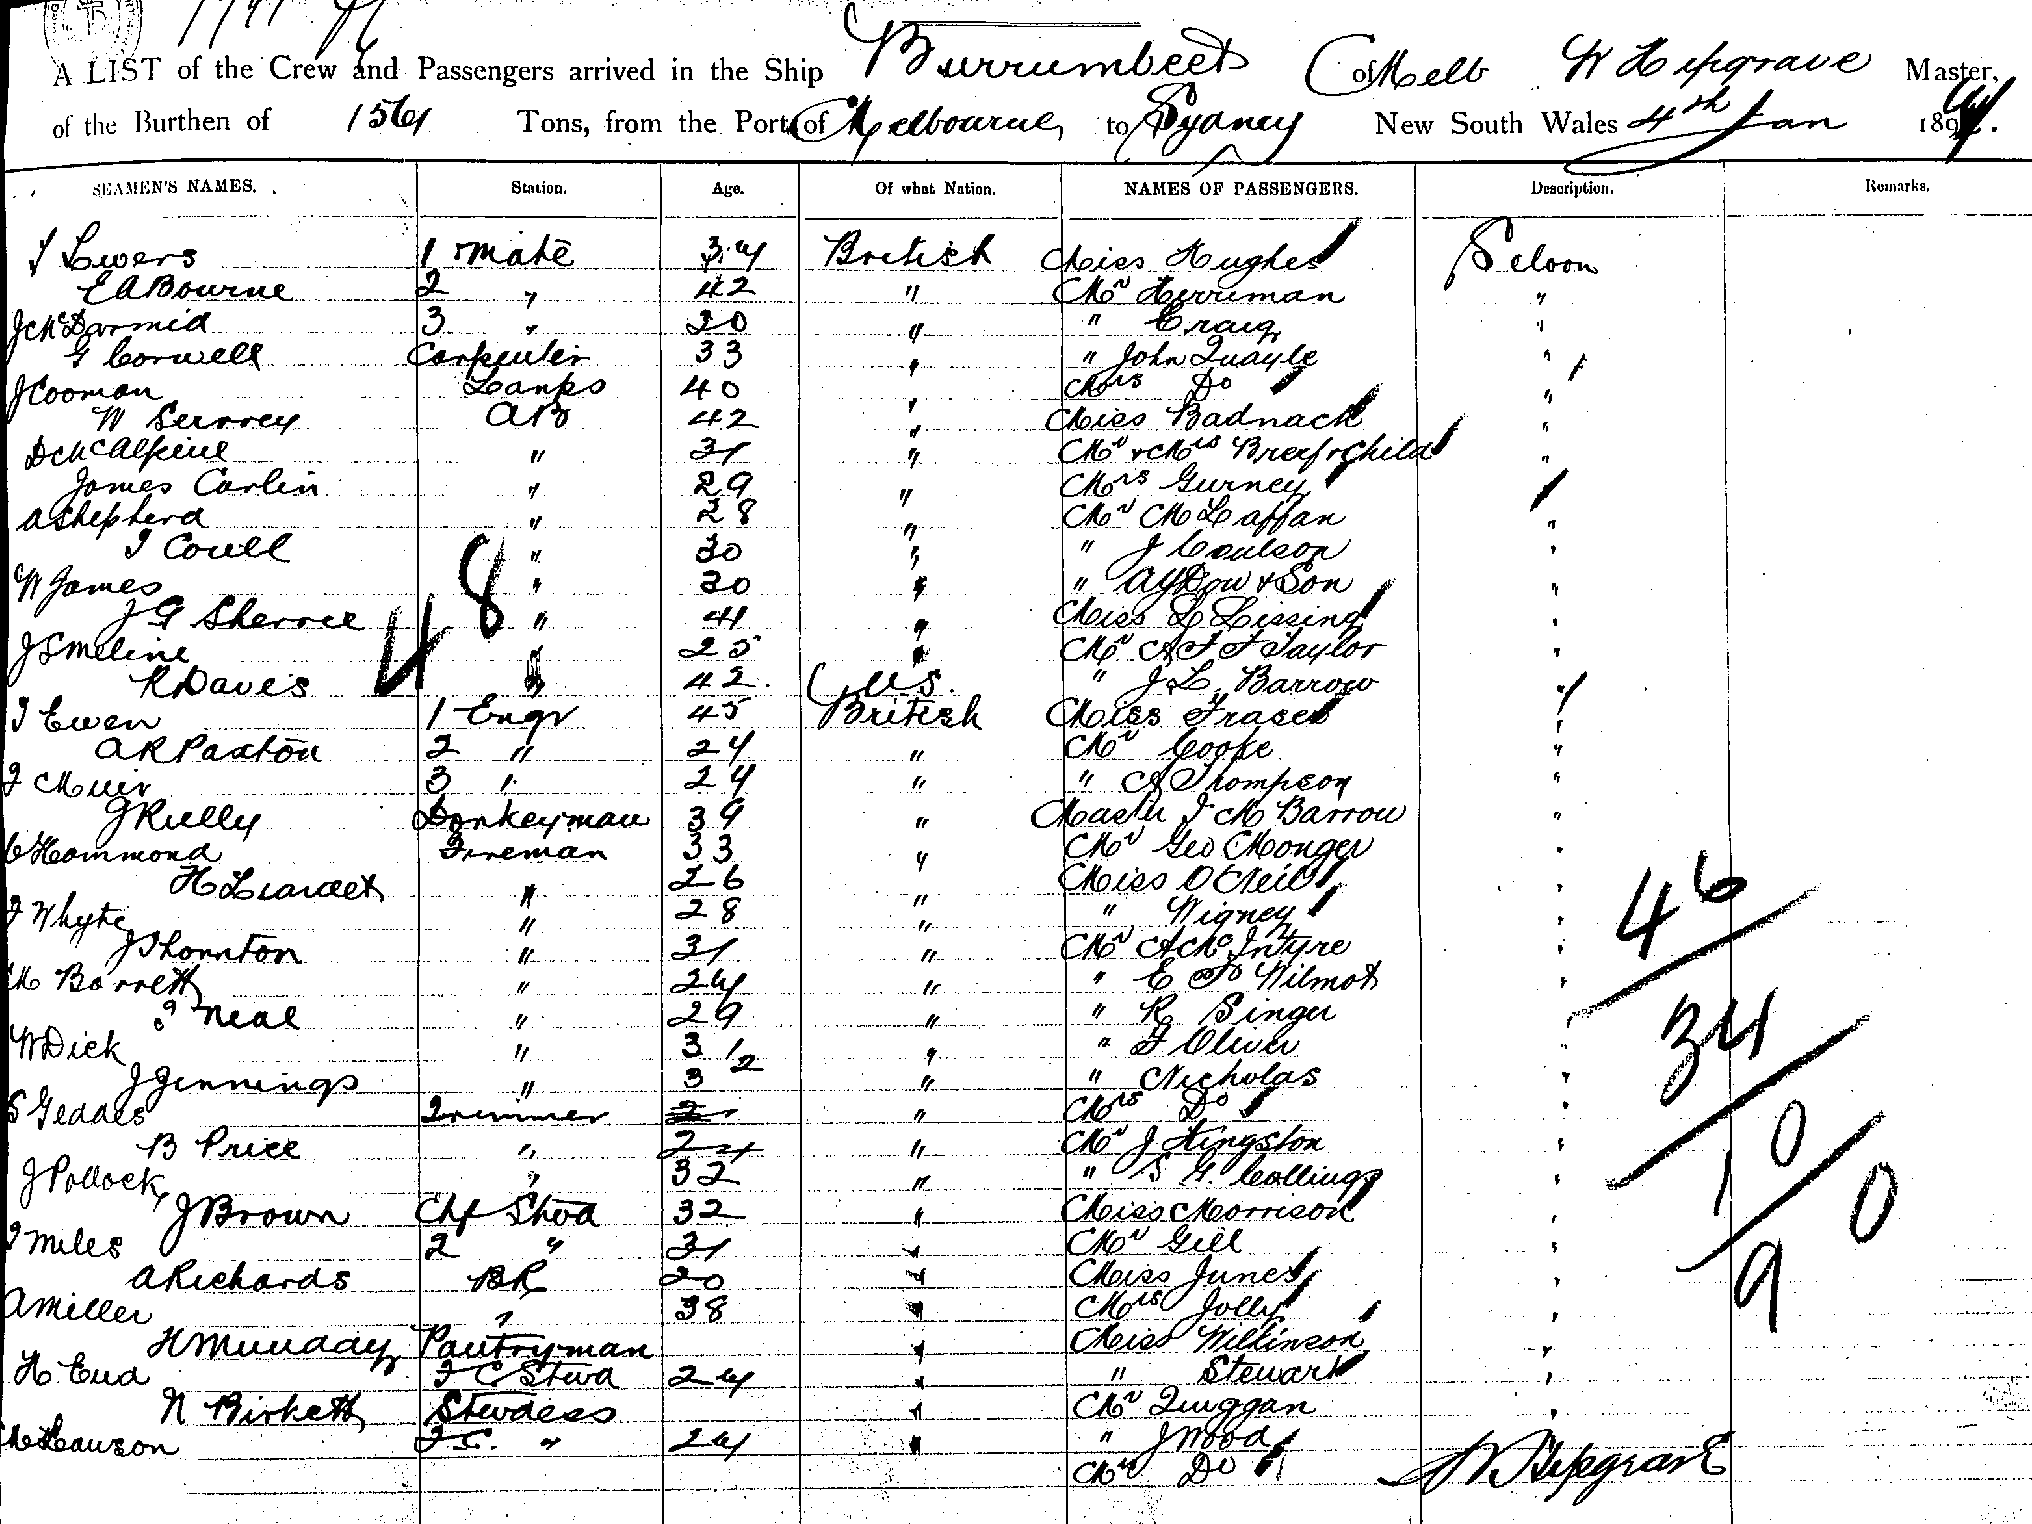 A LIST of the Crew and Passengers arrived in the Ship Burrumbeet of Melb W Hipgrave Master,
of the Burthen of 1561 Tons, from the Port of Melbourne, to Sydney New South Wales 4th Jan 1894.
SEAMEN'S NAMES. Station. Age. Of what Nation. NAMES OF PASSENGERS. Description. Remarks.
Lwers 1 Mate 34 British Miss Hughes Saloon
E A Bourne 2 " 42 " Mr Herriman "
J McDarmid 3 " 20 " " Craig "
G Corwell Carpenter 33 " " John Quayle "
J Cooman Lamps 40 " Mrs Do "
W Servrey AB 42 " Miss Badnack "
D McAlpine " 31 " Mr & Mrs & Child "
James Carlin " 29 " Mrs Gurney
A Shepherd " 28 " Mr M Laffan "
T Coull " 30 " " J Coulson "
W James " 30 " " Dow & Son "
J G Sherrie " 41 " Miss L Lissing "
J Smeline " 25 " Mr A F T Taylor "
R Davis " 42 U.S. " J L Barrow "
T Ewen 1 Engr 45 British Miss Fraser "
A R Paxton 2 " 24 " Mr Cooke "
J Muir 3 " 24 " " A Thompson "
J Rielly Donkeyman 39 " Master J M Barrow "
C Hammond Fireman 33 " Mr Geo Monger "
H Liardet " 26 " Miss O'Neil "
J Whyte " 28 " " Wigney "
J Thornton " 31 " Mr A McIntyre "
M Barrett " 24 " " E Wilmot "
J Neal " 29 " " R Singer "
W Dick " 31 " " F Oliver "
J Jennings " 32 " " Nicholas "
S Geddes Trimmer " Mrs Do "
B Price " 24 " Mr J Kingston "
J Pollock " 32 " " S G Collings "
J Brown Chf Stwd 32 " Miss Morrison "
J Miles 2 " 31 " Mr Gill "
A Richards BR 20 " Miss Junes "
A Miller " 38 " Mrs Jolly "
H Munday Pantryman " Miss Wilkinson "
H Eud F C Stwd 24 " " Stewart "
N Birkett Stwdess " Mr Duggan "
M Lawson " 24 " " J Wood
Mrs Do
W Hipgrave
48
46
34
10
90